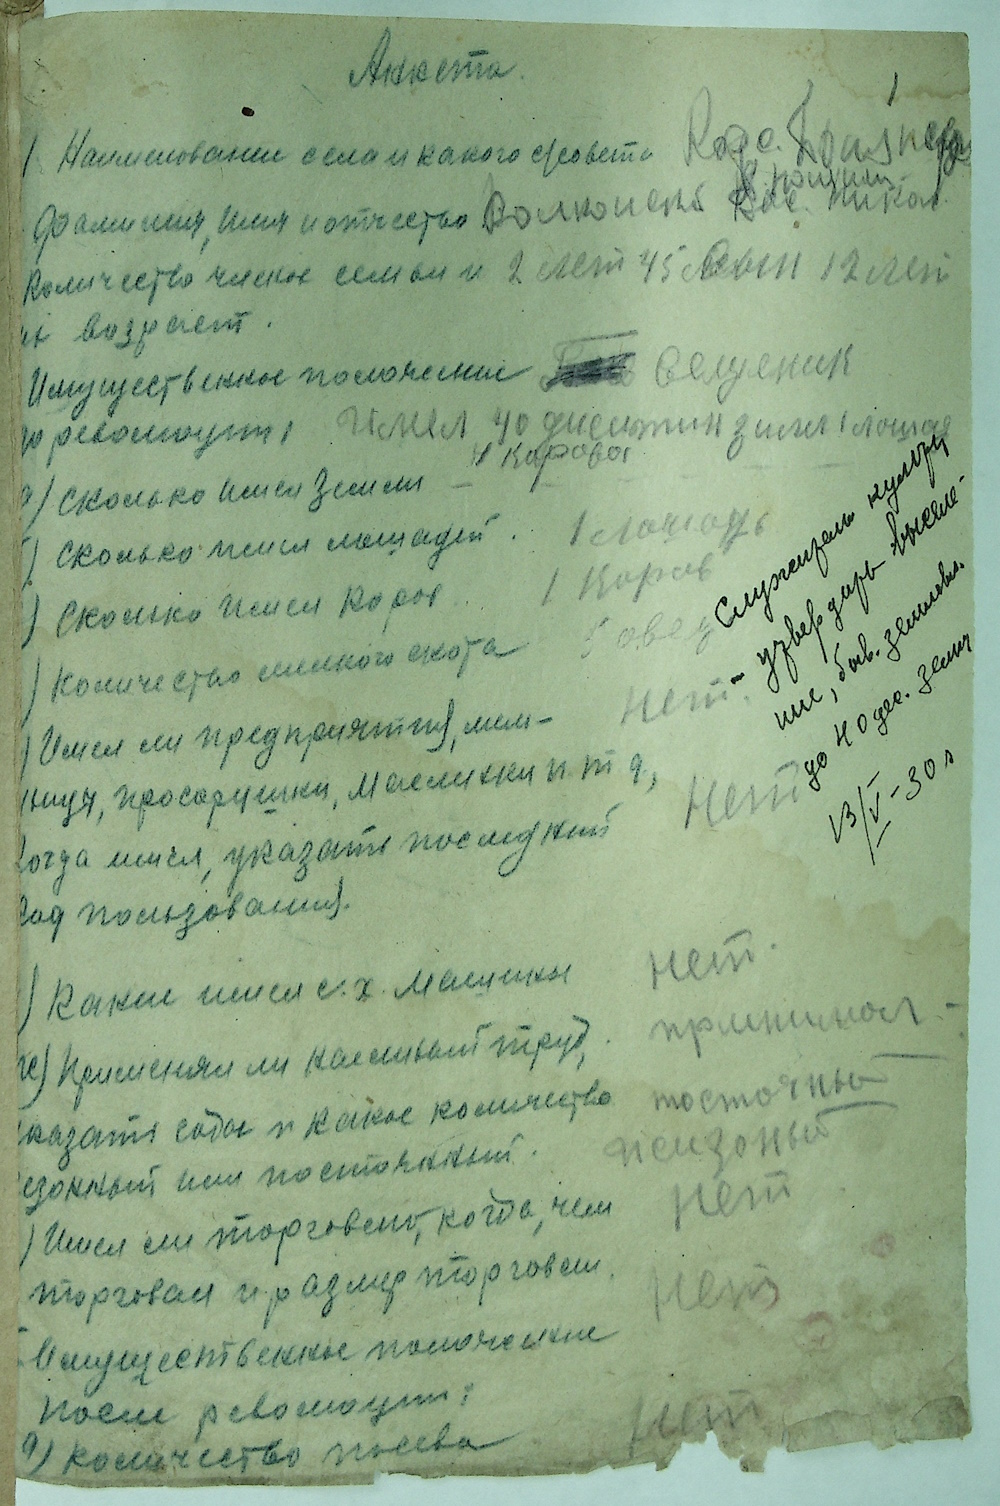 Анкета.
1
1. Наименование села и какого с/совета
Фамилия, имя и отчество Волконский Вас. Никол.
Количество членов семьи и 2 лет 45 сын 12 лет
их возраст.
Имущественное положение Свещеник
до революции, Имел 40 десятин земли 1 лошадь
1 Корова
а) Сколько имел Земли
Сколько имел лошадей. 1 лошадь
) Сколько имел Коров 1 Коров
) Количество мелкого скота 5 овец
) Имел ли предприятия, мель- Нет.
ницу, просорушки, Маслянки и т д,
Когда имел, указать последний Нет
год пользования.
) Какие имел с.х. Машины Нет.
ж) Применял ли наемный труд, применял.
указать годы и какое количество посточный
сезонный или постоянный. и сизоный
) Имел ли торговлю, когда, чем Нет
торговал и размер торговли. Нет
Имущественное положение
после революции:
а) Количество посева Нет
Служитель культа
утвердить выселе-
ние, быв. землевл.
до 40 дес. земли
13/V-30 г